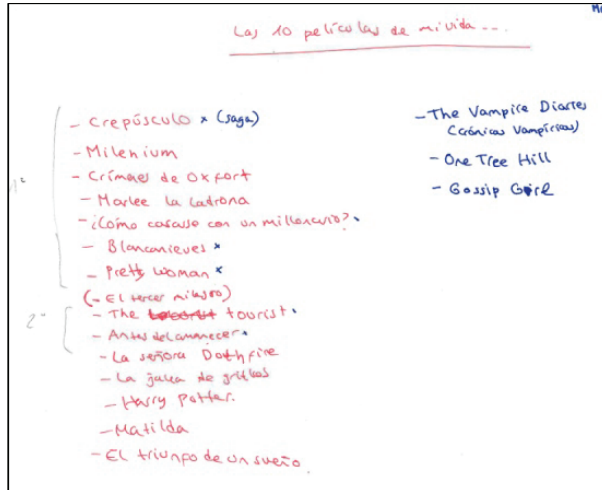 Las 10 películas de mi vida...
- Crepúsculo x (saga)
- Milenium
- Crímenes de Oxfort
- Marlee la ladrona
- ¿Cómo casarse con un millonario?
- Blancanieves x
- Pretty Woman x
(- El tercer milagro)
- The tourist.
- Antes del amanecer.
- La señora Dothfire
- La jaula de grillos
- Harry Potter.
- Matilda
- El triunfo de un sueño.
1º
2º
- The Vampire Diaries
(Crónicas Vampíricas)
- One Tree Hill
- Gossip Girl